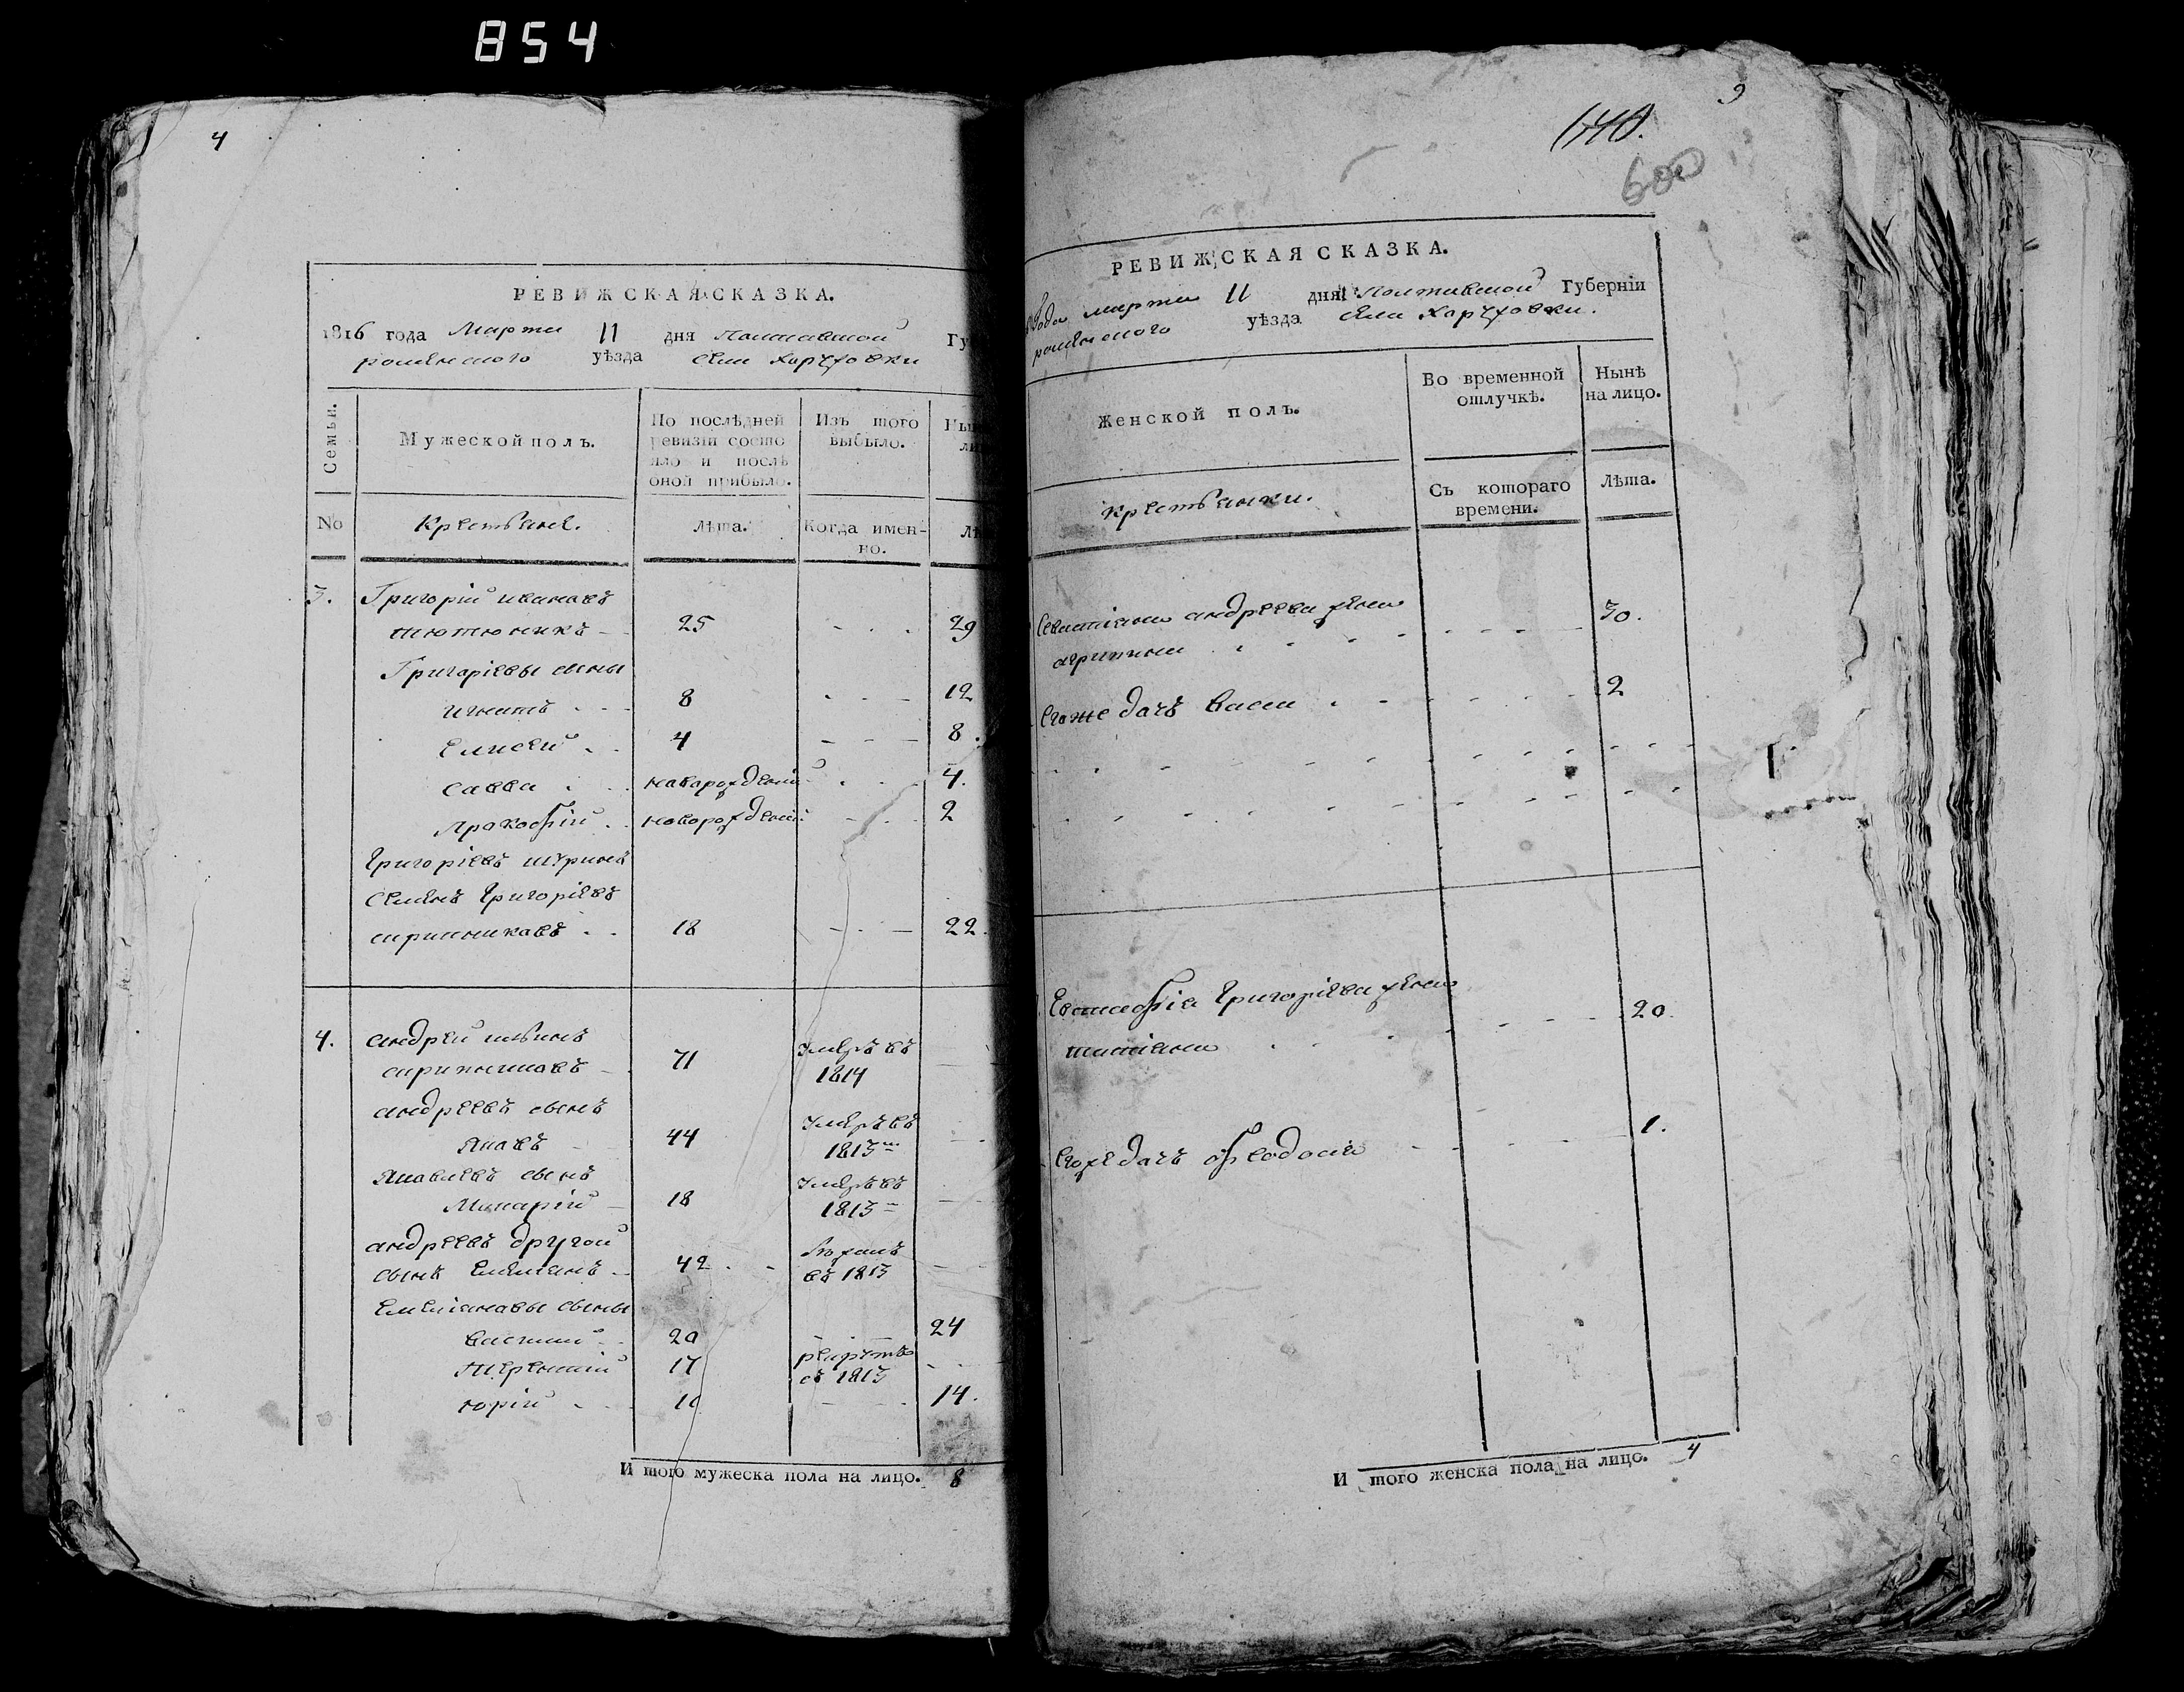 854
4
РЕВИЖСКАЯ СКАЗКА.
1816 года Марта 11 дня Полтавской Гу
роменского уѣзда села Харуховки
Семьи.
Мужеской полъ.
По послѣдней
ревизіи состо
яло и послѣ
оной прибыло.
Изъ того
выбыло.
Ны
ли
No
Крестьяне.
Лѣта.
Когда имен-
но.
Лѣ
3. Григорій ивановъ
тютюникъ 25 29
Григоріевы сыны
игнатъ 8 12
Елисей 4 8.
савва новорожденій 4.
Прокофій новорожденій 2
Григоріевъ шуринъ
Семенъ Григоріевъ
скрипниковъ 18 22.
4. андрей
скрипниковъ 71 умре въ 1814
андреевъ сынъ
Яковъ 44 умре въ 1813
Яковлевъ сынъ
Макарій 18 умре въ 1813
андреевъ другой
сынъ Емелианъ 42 въ 1813
Емелиановы сыны
василий 20 24
Терентий 17 рекрутъ въ 1813
юрій 10 14.
И того мужеска пола на лицо. 8
9
140.
600
РЕВИЖСКАЯ СКАЗКА.
года марта 11 дня Полтавской Губерніи
роменского уѣзда села Харуховки.
Женской полъ.
Во временной
отлучкѣ.
Нынѣ
на лицо.
Крестьянки.
Съ котораго
времени.
Лѣта.
андреева жена
агрипина 30.
Егоже дочь васса 2
Евстафія Григоріева жена
татіана 20.
Егоже дочь феодосія 1.
И того женска пола на лицо. 4